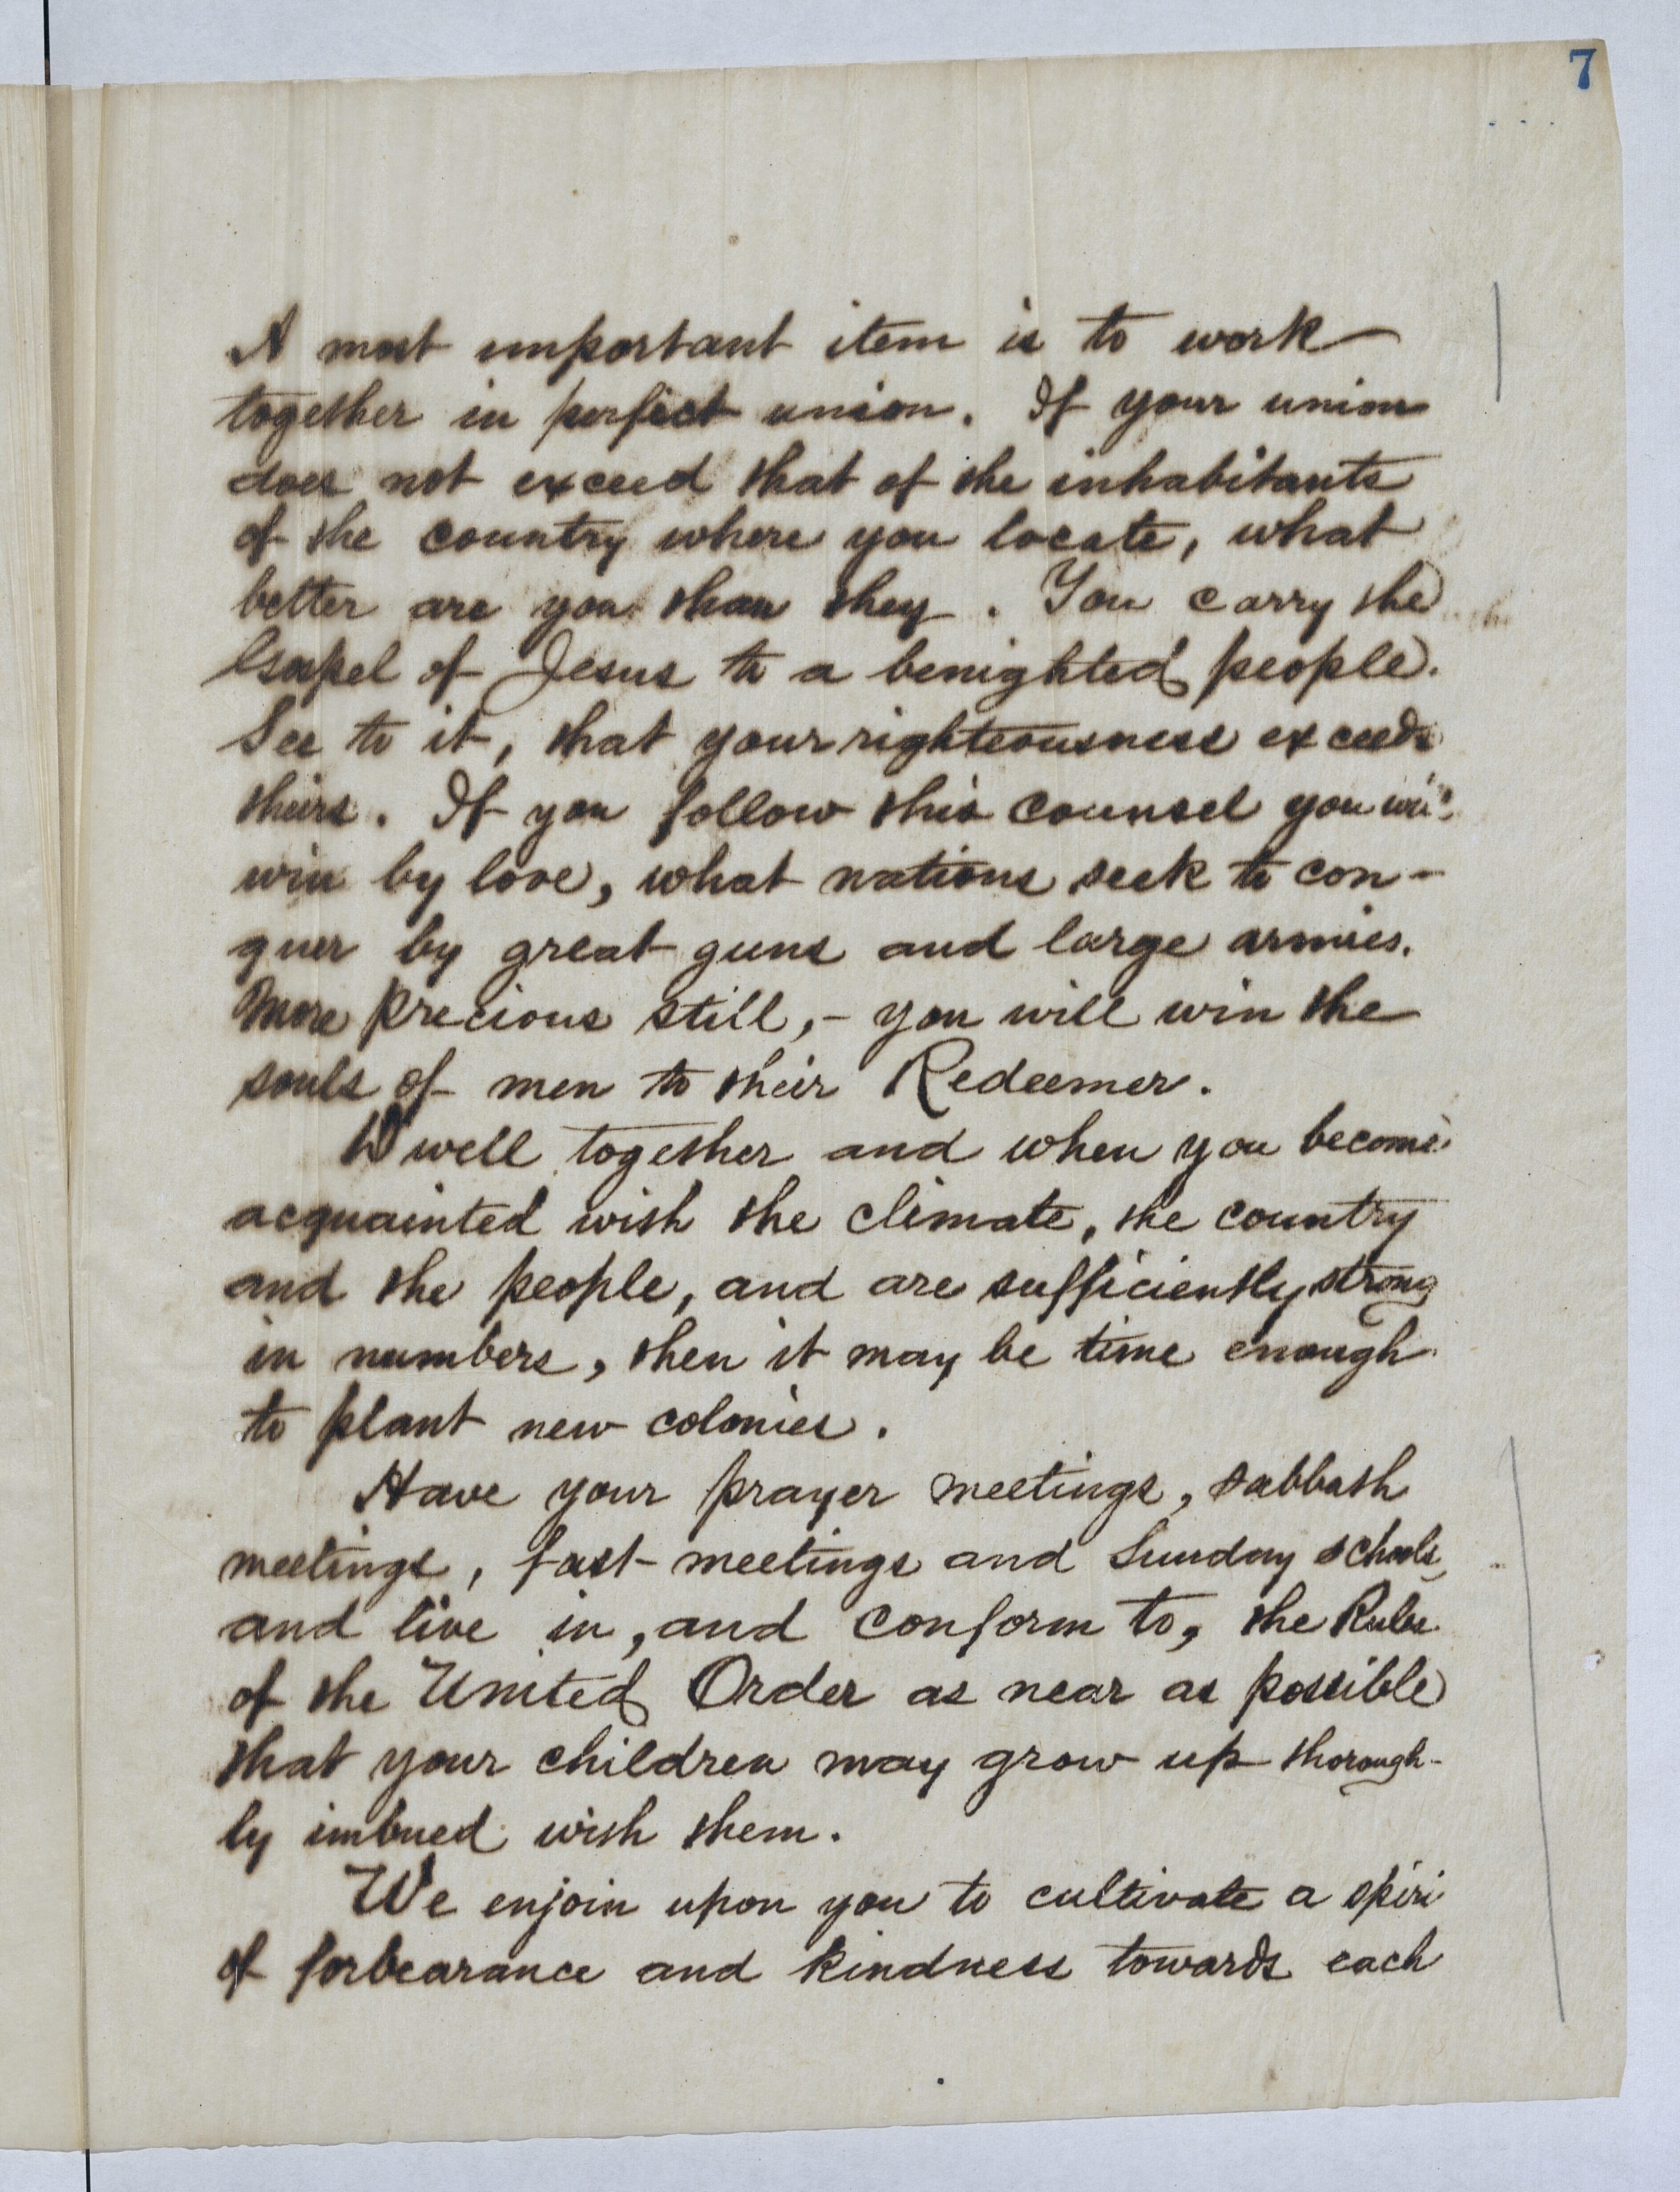 7
A most important item is to work
together in perfect union. If your union
does not exceed that of the inhabitants
of the country where you locate, what
better are you than they. You carry the
Gospel of Jesus to a benighted people.
See to it, that your righteousness exceeds
theirs. If you follow this counsel you will
win by love, what nations seek to con-
quer by great guns and large armies.
More precious still,- you will win the
souls of men to their Redeemer.
Dwell together and when you become
acquainted with the climate, the country
and the people, and are sufficiently strong
in numbers, then it may be time enough
to plant new colonies.
Have your prayer meetings, sabbath
meetings, fast meetings and Sunday schools,
and live in, and conform to, the Rules
of the United Order as near as possible
that your children may grow up thorough-
ly imbued with them.
We enjoin upon you to cultivate a spiri
of forbearance and kindness towards each